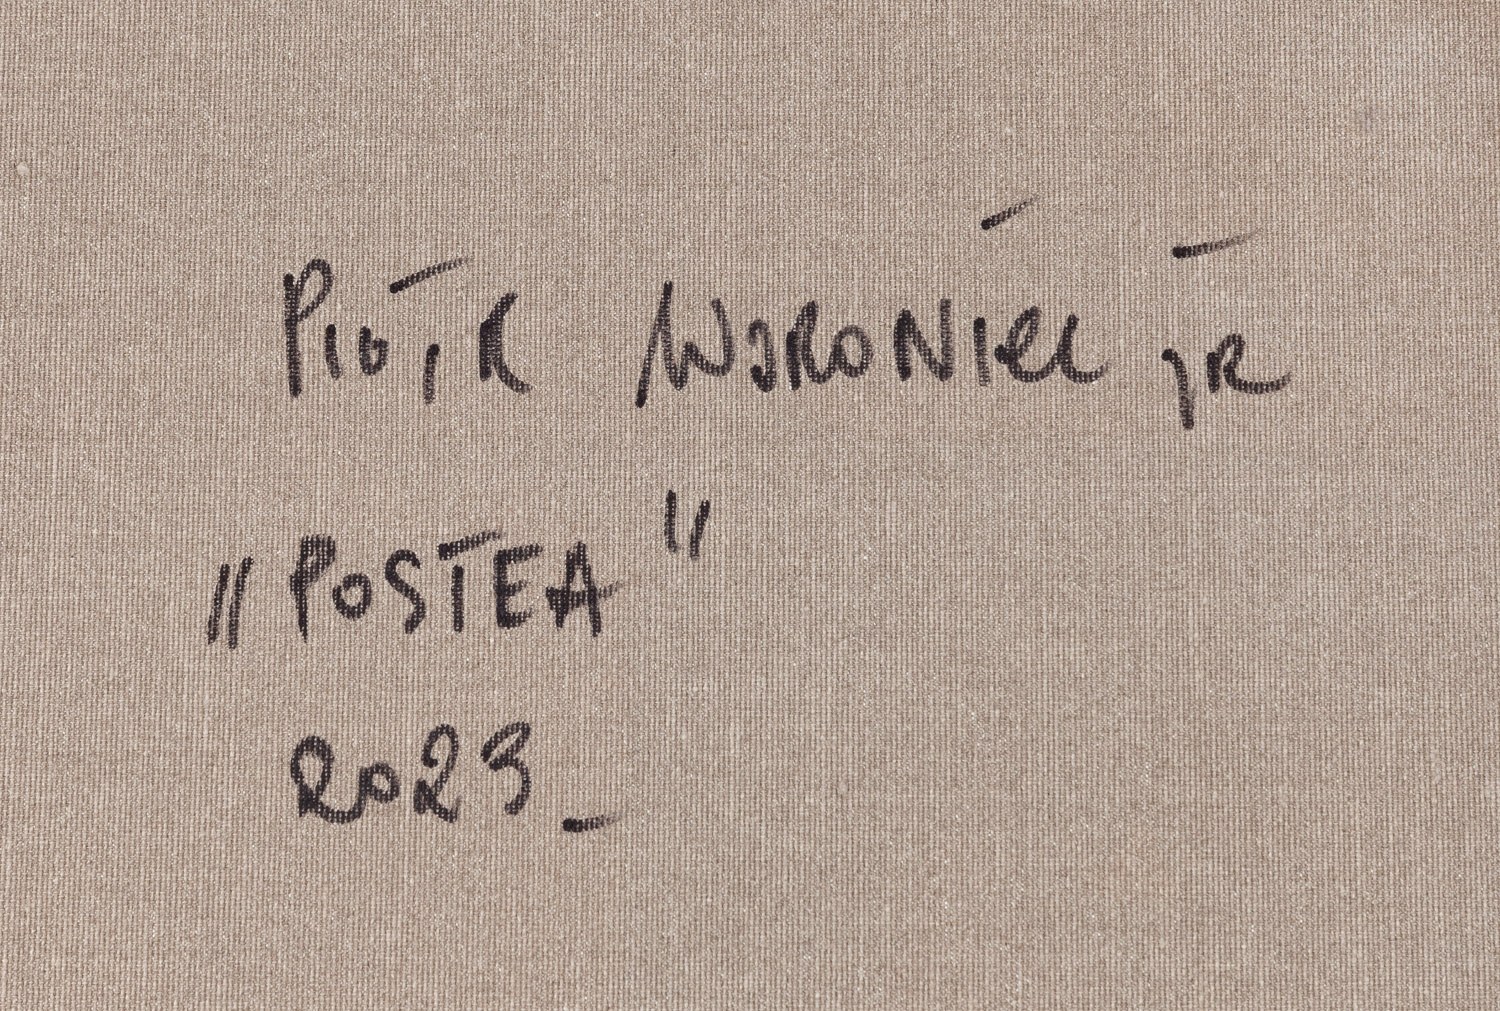 PIOTR WORONIEC JR
„POSTEA"
2023_